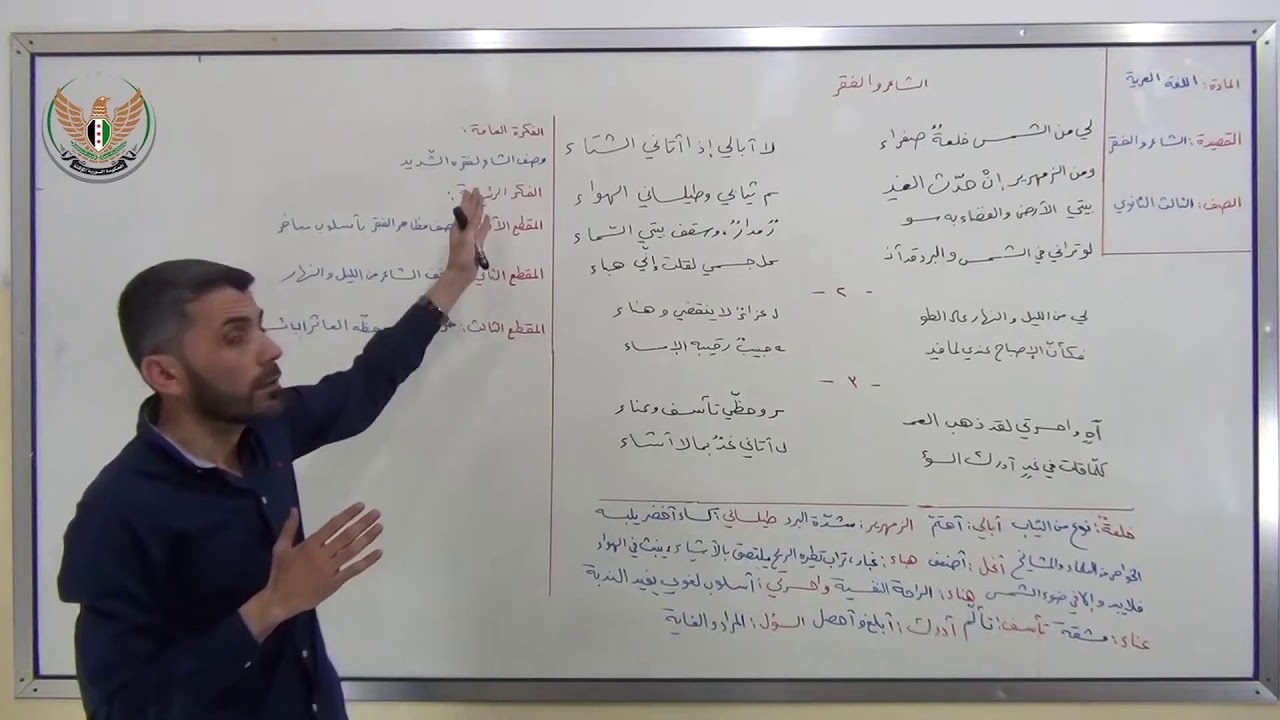 المادة: اللغة العربية
القصيدة: الشاعر والفقر
الصف: الثالث الثانوي
الشاعر والفقر
لي من الشمس خلعةٌ صفراء لا أبالي إذا أتاني الشتاء
ومن الزمهرير إنْ حدّث الغيـ م ثيابي وطيلساني الهواء
بيتي الأرض والفضاء به سو رٌ مدارٌ، وسقف بيتي السّماء
لو تراني في الشمس والبرد قد أنـ حل جسمي لقلت إنّي هباء
- ٢ -
لي من الليل والنهار على الطو ل عزاءٌ لا ينقضي وهناء
فكأنّ الإصباح عندي لما فيـ ه حبيبٌ رقيبه الإمساء
- ٣ -
آهٍ واحسرتي لقد ذهب العمـ ر وحظّي تأسف وعناء
كلّما قلت في غدٍ أدرك السؤ ل أتاني غدٌ بما لا أشاء
خلعةٌ: نوع من الثياب أبالي: أهتمّ الزمهرير: شدّة البرد طيلساني: كساء أخضر يلبسه
الخواص من العلماء والمشايخ أنحل: أضعف هباء: غبار، تراب تطيره الريح يلتصق بالأشياء، ينبث في الهواء
فلا يبدو إلا في ضوء الشمس هناء: الراحة النفسية واحسرتي: أسلوب لغوي يفيد الندبة
عناء: مشقة تأسف: تألّم أدرك: أبلغ وأحصل السؤل: المراد والغاية
الفكرة العامة:
وصف الشاعر لفقره الشّديد
الفكر الرئيسة:
المقطع الأول وصف مظاهر الفقر بأسلوب ساخر
المقطع الثاني الشاعر من الليل والنهار
المقطع الثالث: حظّه العاثر